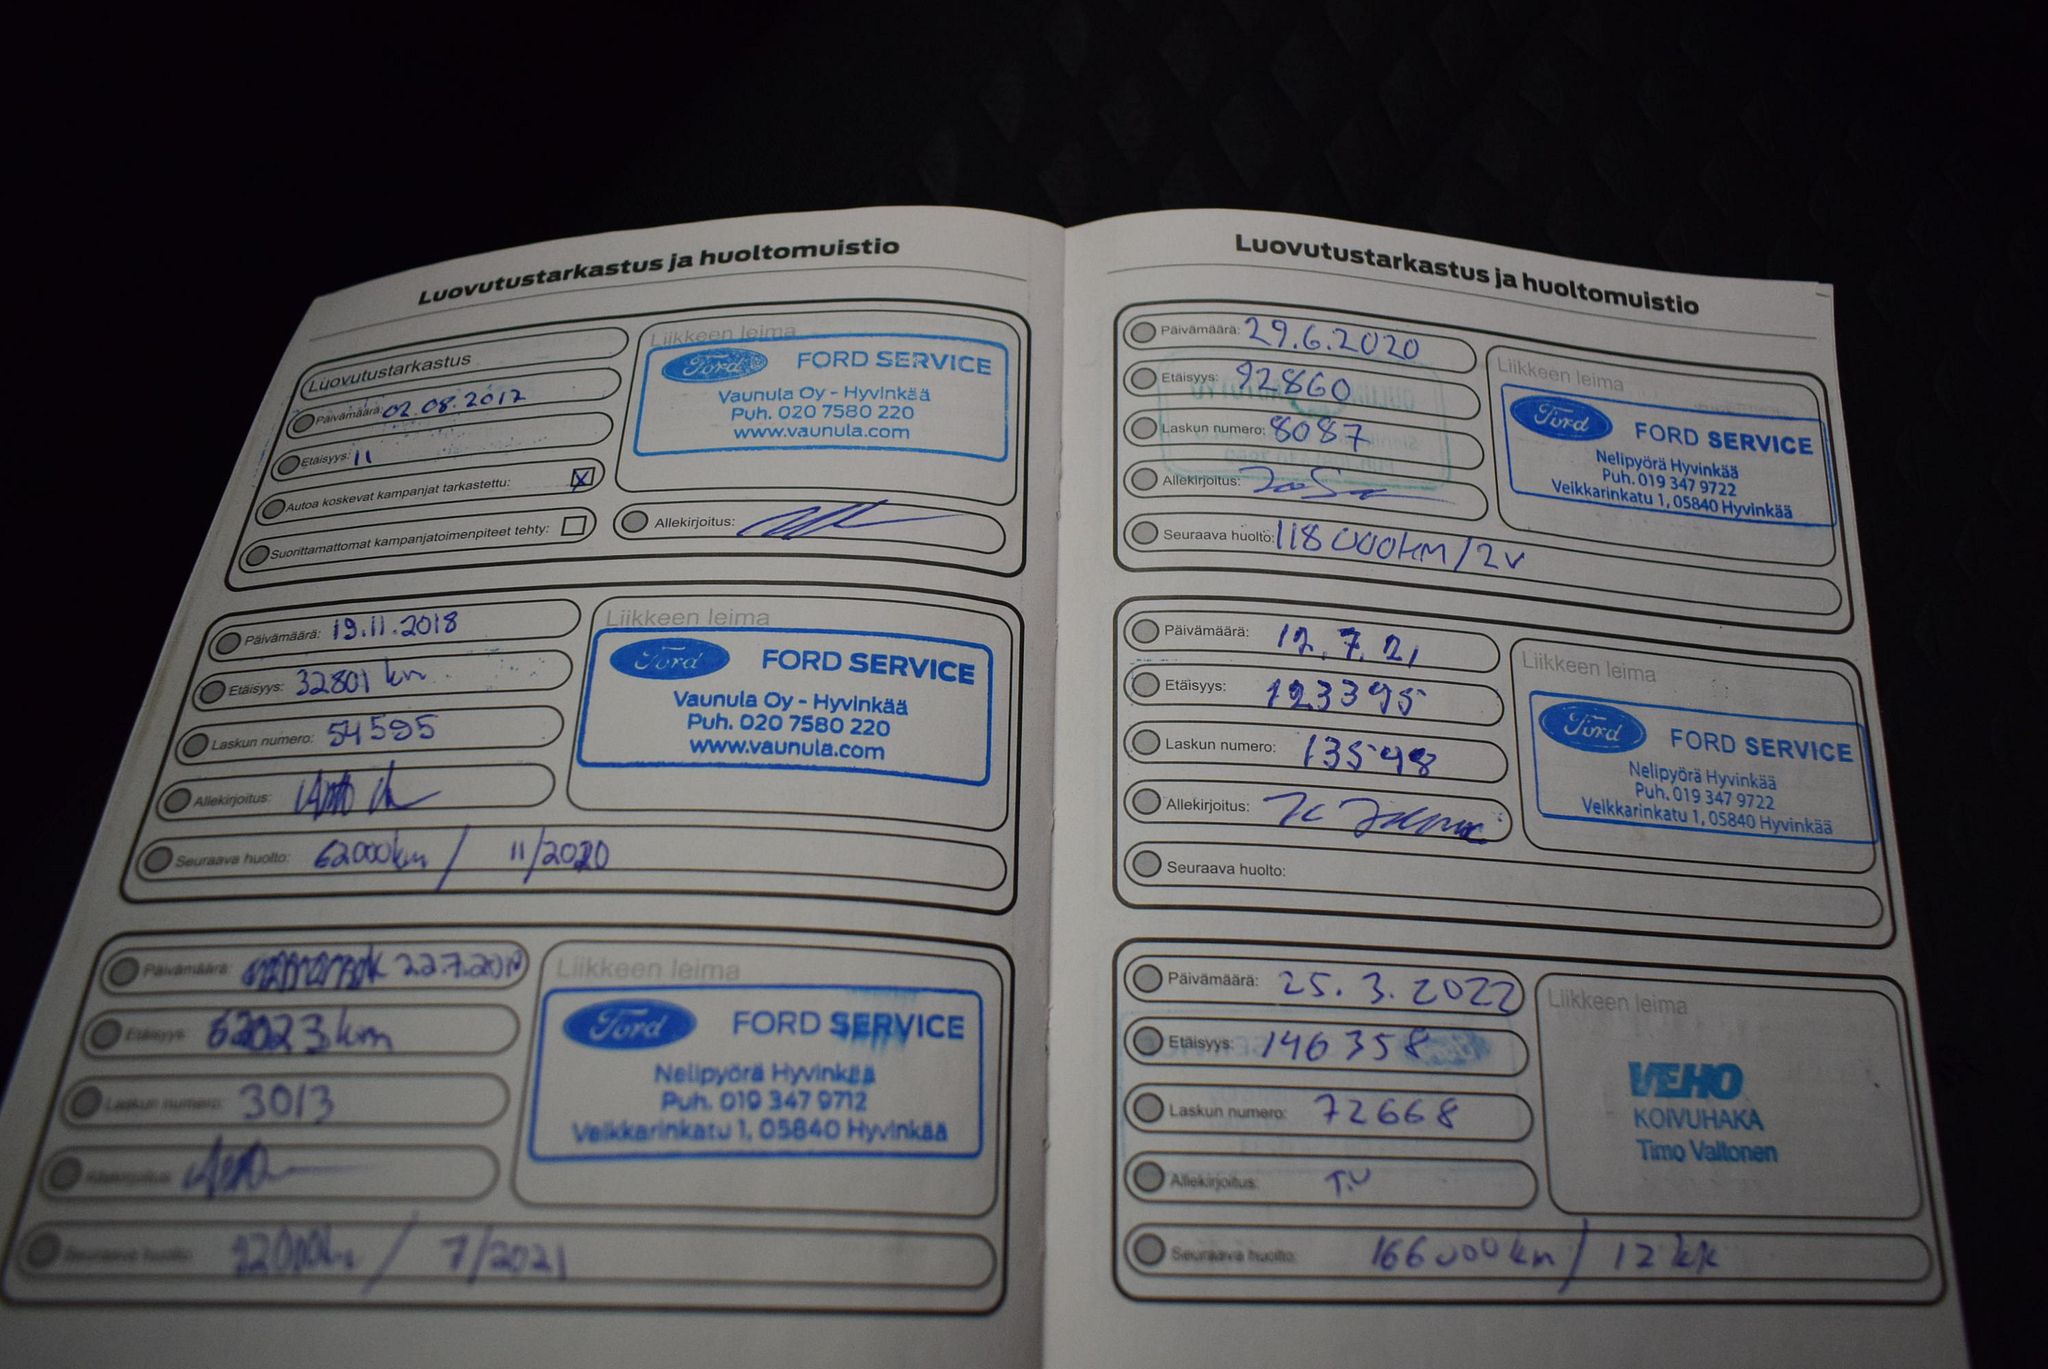 Luovutustarkastus ja huoltomuistio
Luovutustarkastus
Päivämäärä: 02.08.2017
Etäisyys: 11
Autoa koskevat kampanjat tarkastettu: X
Suorittamattomat kampanjatoimenpiteet tehty:
Liikkeen leima
Ford FORD SERVICE
Vaunula Oy - Hyvinkää
Puh. 020 7580 220
www.vaunula.com
Allekirjoitus:
Päivämäärä: 19.11.2018
Etäisyys: 32801 km
Laskun numero: 54595
Allekirjoitus:
Seuraava huolto: 62000km / 11/2020
Liikkeen leima
Ford FORD SERVICE
Vaunula Oy - Hyvinkää
Puh. 020 7580 220
www.vaunula.com
Päivämäärä: 22.7.2019
Etäisyys: 62023 km
Laskun numero: 3013
Allekirjoitus:
Seuraava huolto: 92000km / 7/2021
Liikkeen leima
Ford FORD SERVICE
Nelipyörä Hyvinkää
Puh. 019 347 9712
Veikkarinkatu 1, 05840 Hyvinkää
Luovutustarkastus ja huoltomuistio
Päivämäärä: 29.6.2020
Etäisyys: 92860
Laskun numero: 8087
Allekirjoitus:
Seuraava huolto: 118000km/2v
Liikkeen leima
Ford FORD SERVICE
Nelipyörä Hyvinkää
Puh. 019 347 9722
Veikkarinkatu 1, 05840 Hyvinkää
Päivämäärä: 12.7.21
Etäisyys: 123395
Laskun numero: 13598
Allekirjoitus:
Seuraava huolto:
Liikkeen leima
Ford FORD SERVICE
Nelipyörä Hyvinkää
Puh. 019 347 9722
Veikkarinkatu 1, 05840 Hyvinkää
Päivämäärä: 25.3.2022
Etäisyys: 146358
Laskun numero: 72668
Allekirjoitus: T.V
Seuraava huolto: 166000km / 12 kk
Liikkeen leima
VEHO
KOIVUHAKA
Timo Valtonen